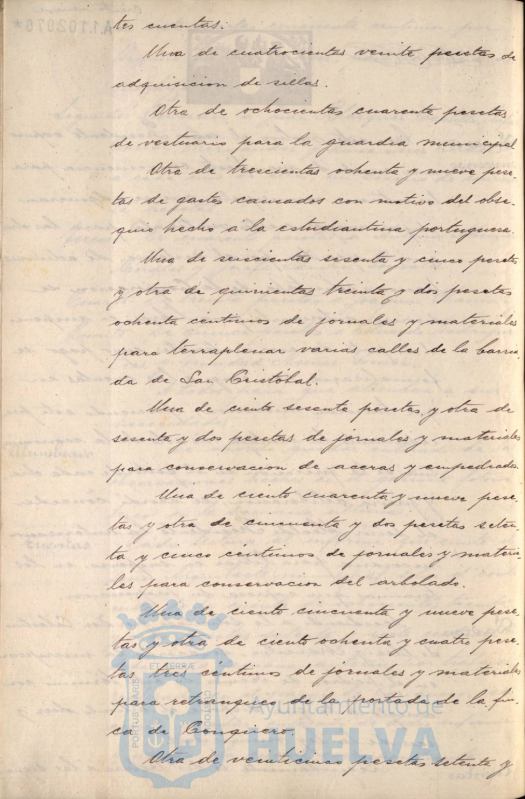 tes cuentas.
A1102076*
Una de cuatrocientas veinte pesetas de
adquisicion de sillas.
Otra de ochocientas cuarenta pesetas
de vestuario para la guardia municipal
Otra de trescientas ochenta y nueve pese-
tas de gastos causados con motivo del obse-
quio hecho a la estudiantina portuguesa.
Una de seiscientas sesenta y cinco pesetas
y otra de quinientas treinta y dos pesetas
ochenta céntimos de jornales y materiales
para terraplenar varias calles de la barria-
da de San Cristóbal.
Una de ciento sesenta pesetas y otra de
sesenta y dos pesetas de jornales y materiales
para conservacion de aceras y empedrado.
Una de ciento cuarenta y nueve pese-
tas y otra de cincuenta y dos pesetas seten-
ta y cinco céntimos de jornales y materia-
les para conservacion del arbolado.
Una de ciento cincuenta y nueve pese-
tas y otra de ciento ochenta y cuatro pese-
tas tres céntimos de jornales y materiales
para retranqueo de la portada de la fin-
ca de Conquero.
Otra de veinticinco pesetas setenta y
Ayuntamiento de
HUELVA
PORTUS MARIS
ET TERRÆ
CUSTODIO